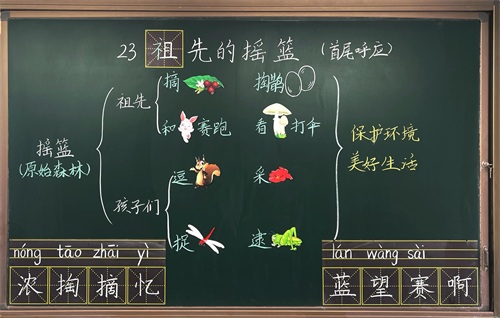 23 祖先的摇篮 (首尾呼应)
摘 掏鹊
祖先
和 赛跑 看 打伞
摇篮
(原始森林)
保护环境
美好生活
逗 采
孩子们
捉 逮
nóng tāo zhāi yì
浓掏摘忆
lán wàng sài
蓝望赛啊